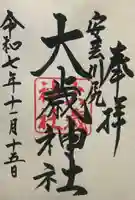 奉拝
安曇川尻
大歳神社
令和七年十一月十五日